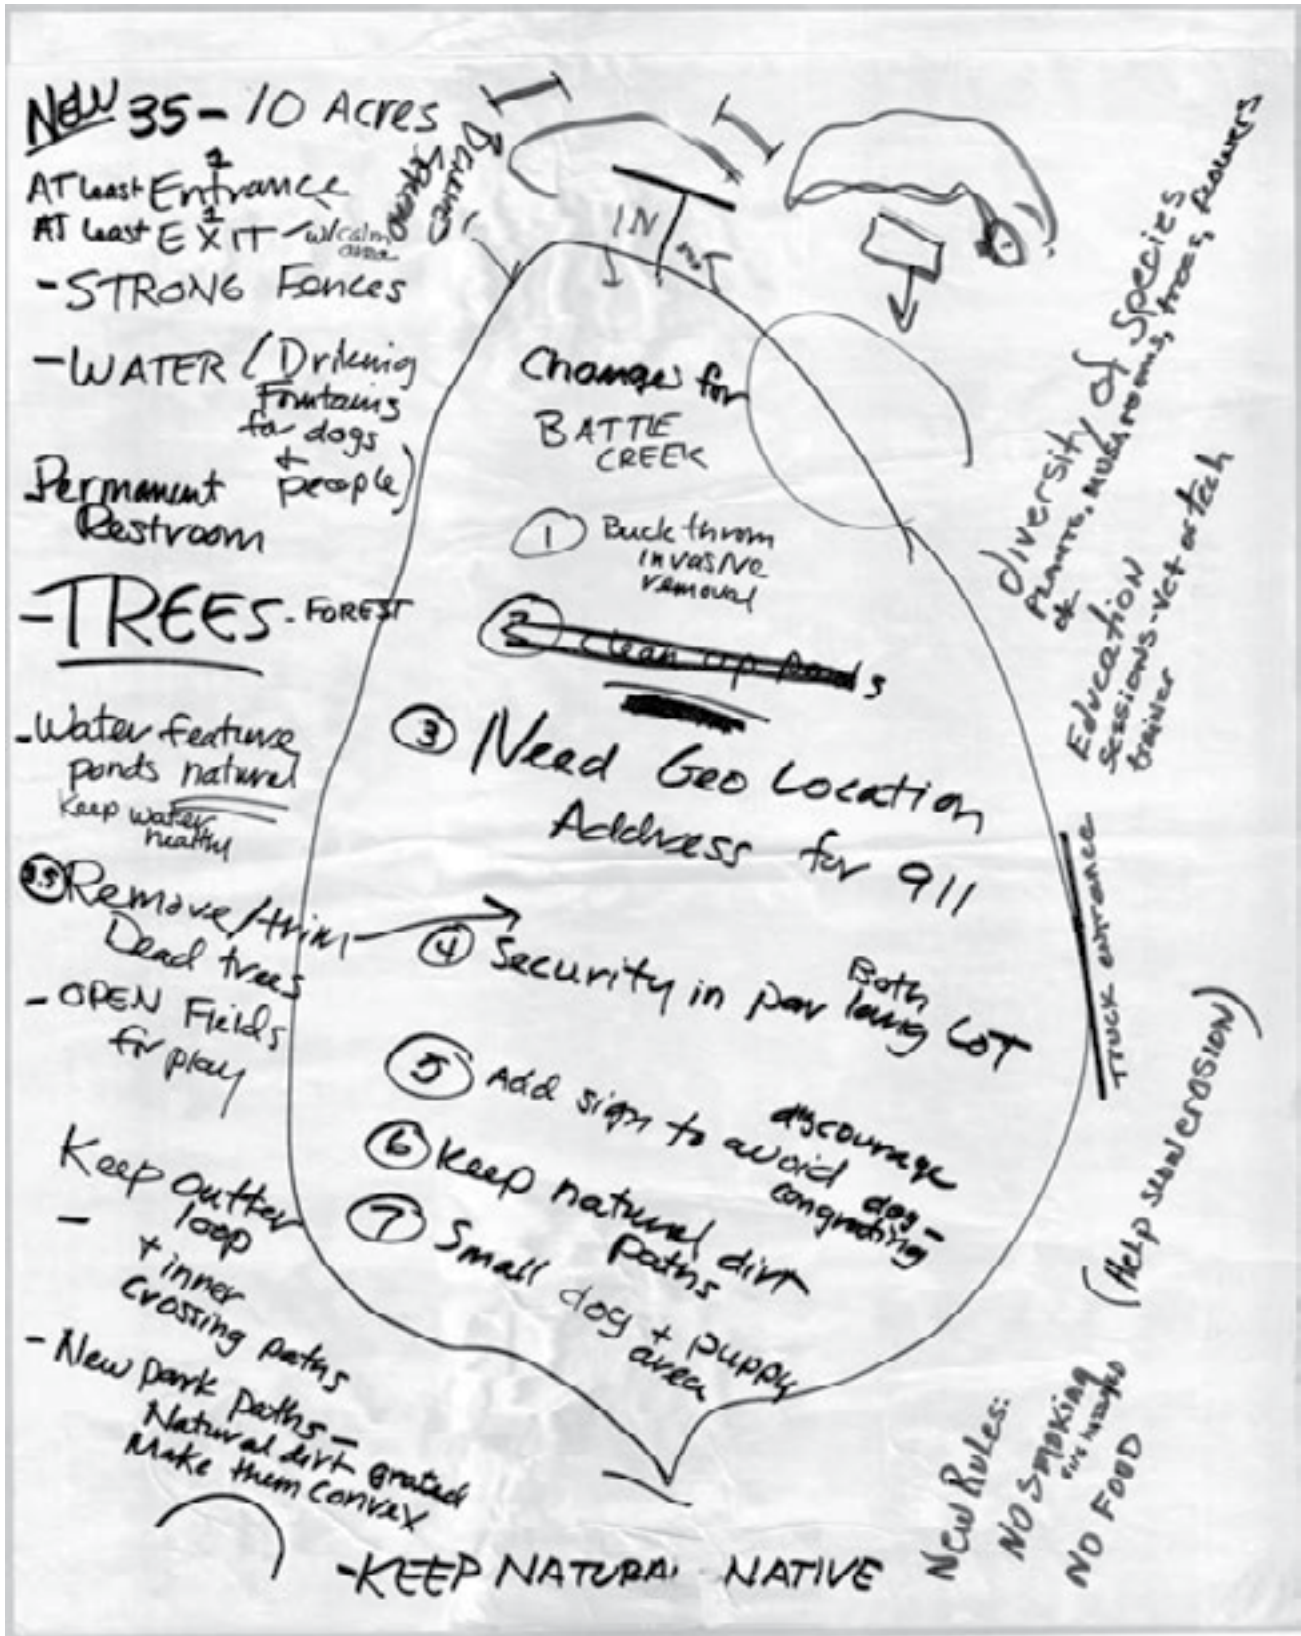 NEW 35 - 10 Acres
AT Least 1 Entrance
AT Least 1 EXIT w/calm
area
- STRONG Fences
- WATER / Driking
Fountains
for dogs
+
people)
Permanent
Restroom
- TREES - FOREST
- Water feature
ponds natural
Keep water
healthy
3.5 Remove/trim
Dead trees
- OPEN Fields
for play
Keep outter
loop
- + inner
crossing paths
- New park paths -
Natural dirt grated
Make them convex
- KEEP NATURAL NATIVE
Double
IN
OUT
Changes for
BATTLE
CREEK
1 Buckthrom
invasive
removal
2 clean up ponds
3 Need Geo Location
Address for 911
4 Security in parking LOT
Both
5 Add sign to avoid dog-
discourage
congrating
6 Keep natural dirt
paths
7 Small dog + puppy
area
diversity of species
PLANTS, MUSHROOMS, trees, flowers
etc
Education
Sessions - Vet or tech
trainer
Truck entrance
(Help slow EROSION)
New Rules:
NO SMOKING
NO FOOD